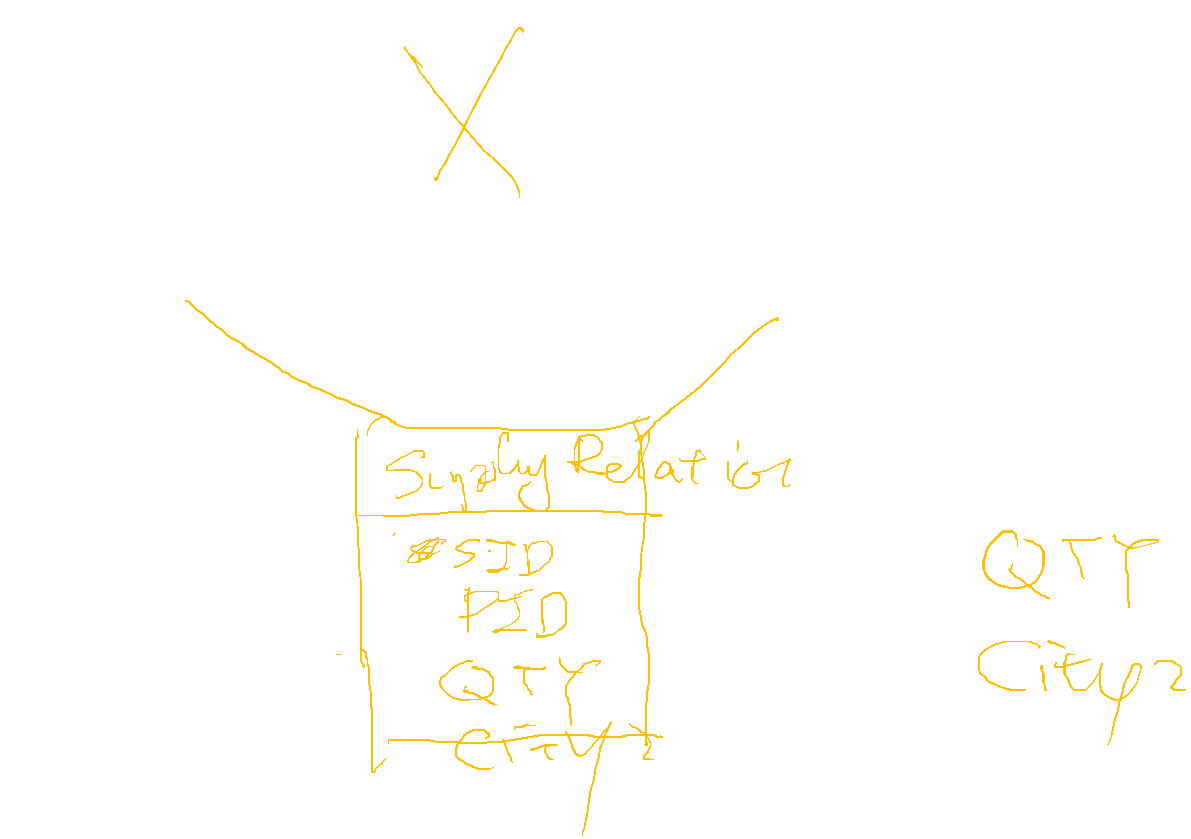 X
Supply Relation
SID
PID
QTY
City 2
QTY
City 2